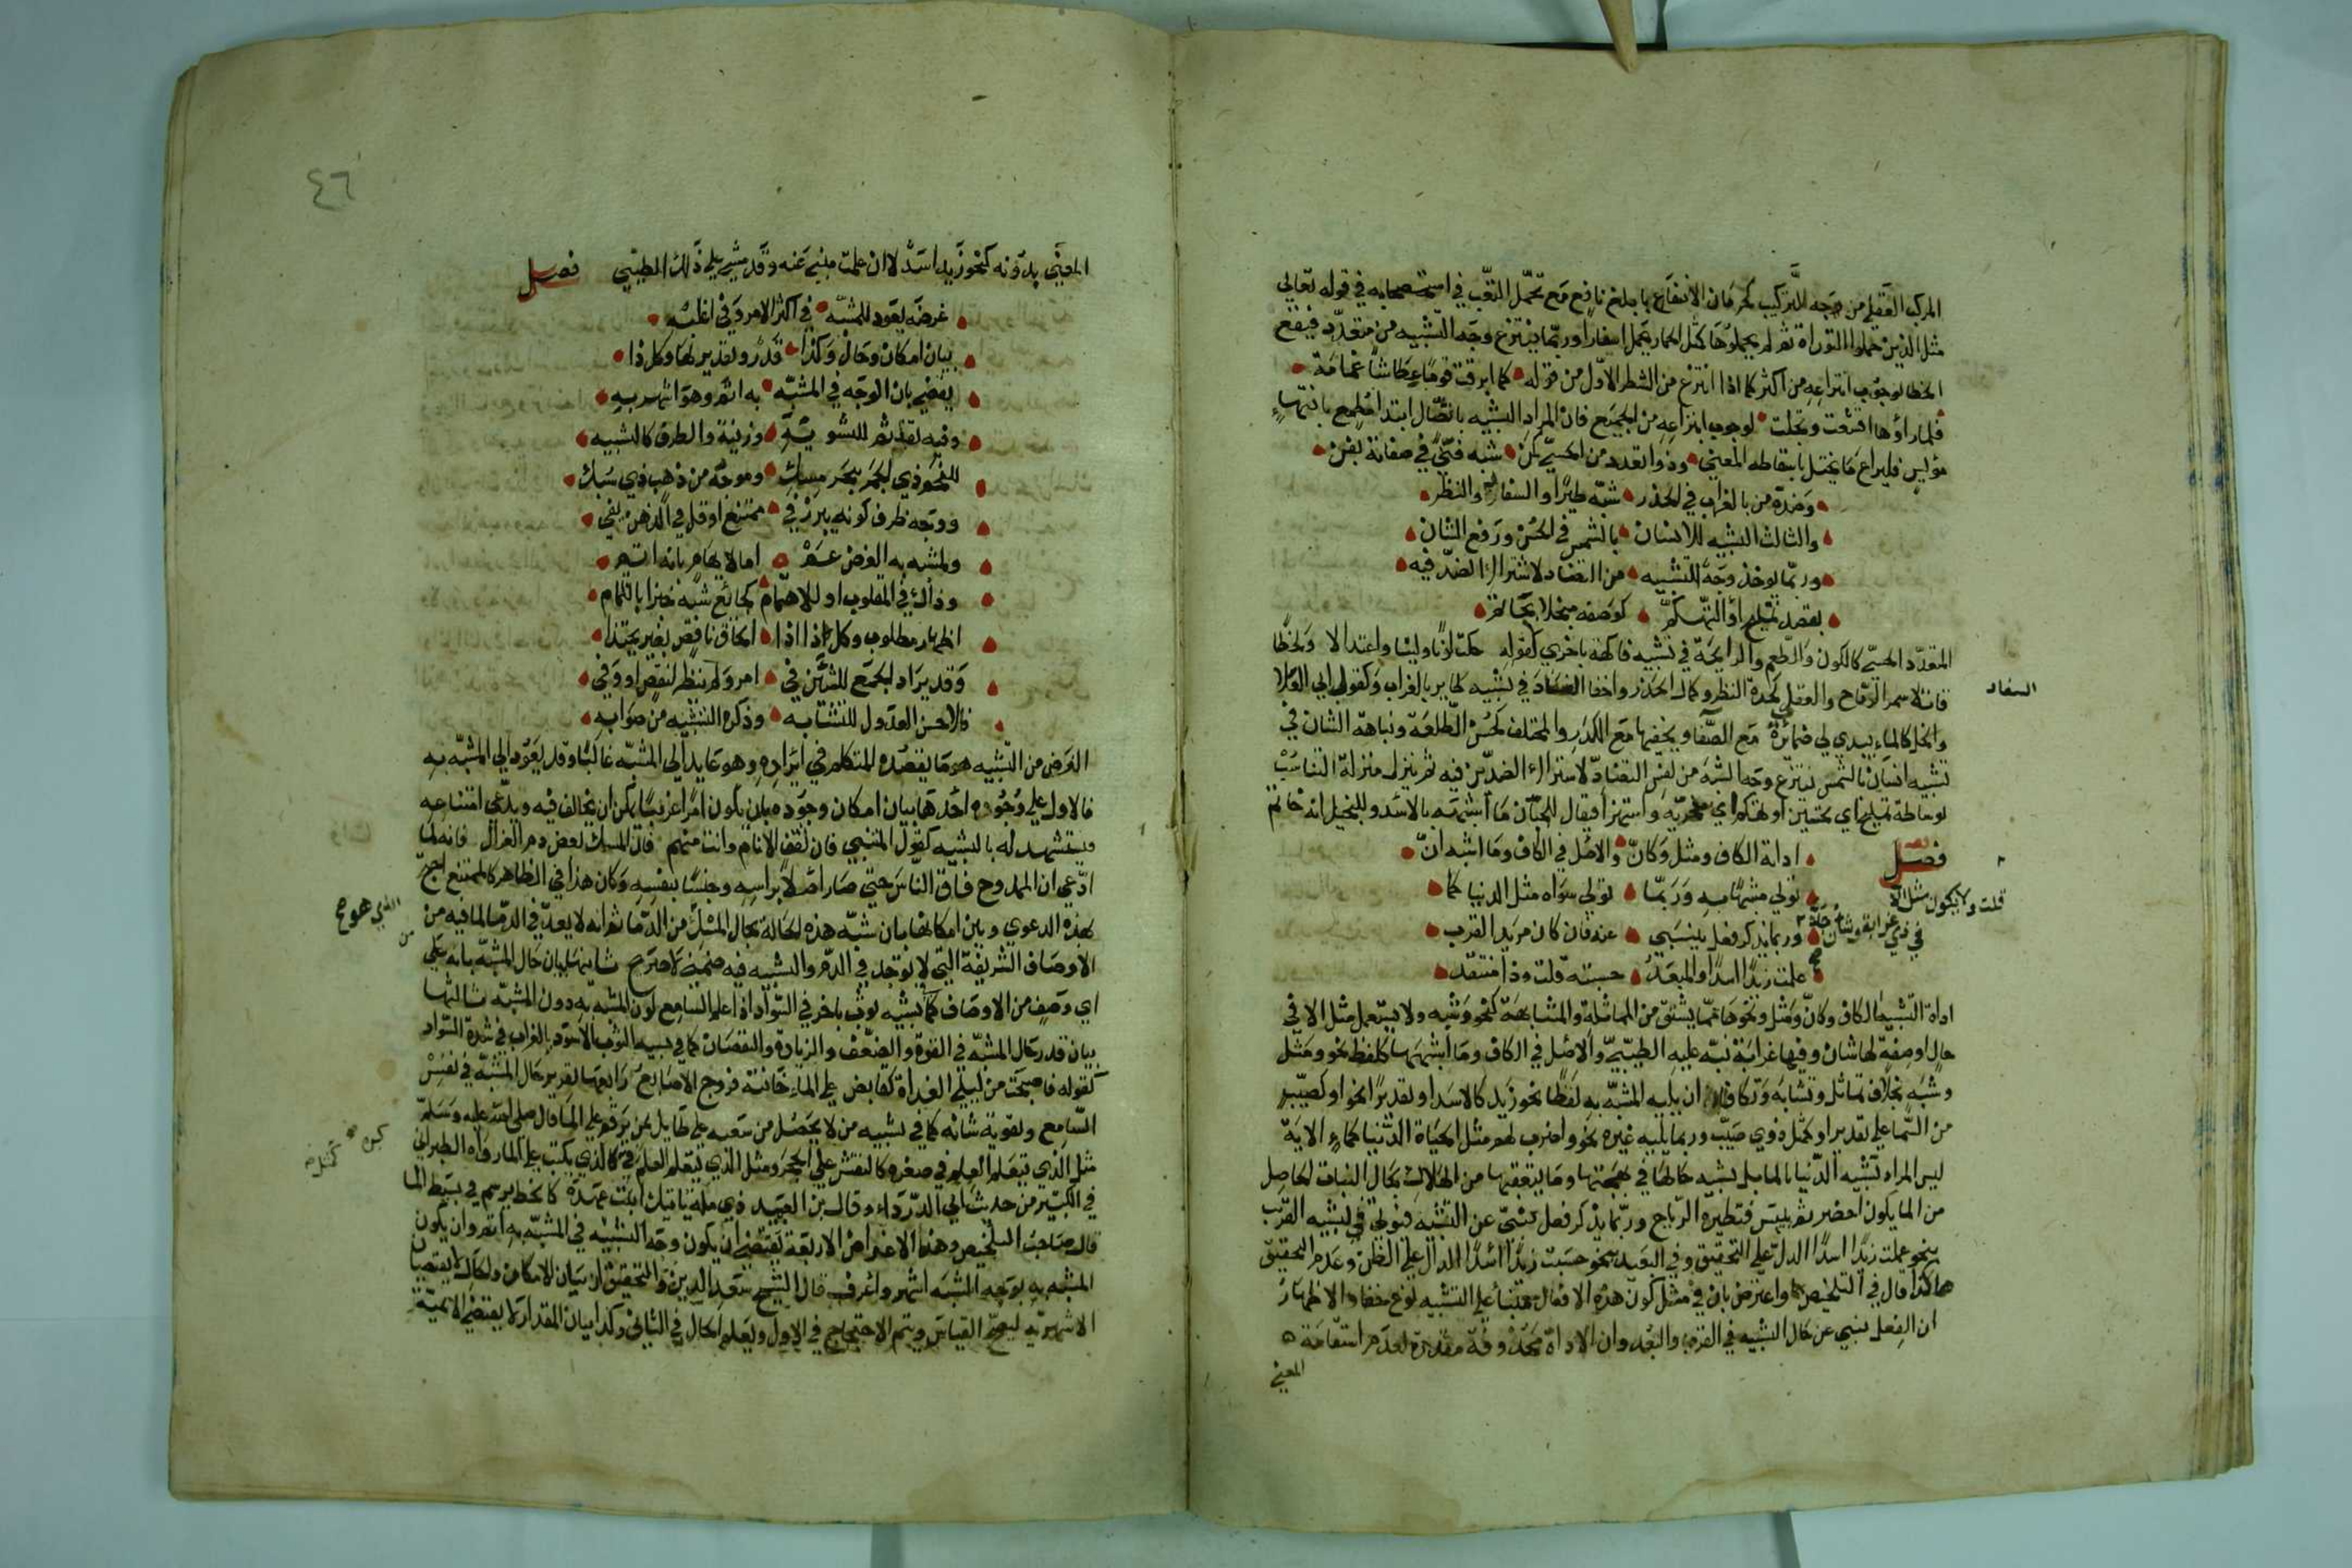 المركب العقلي من وجه التركيب كحرمان الانتفاع بابلغ نافع مع تحمل التعب في استصحابه في قوله تعالى
مثل الذين حملوا التوراة ثم لم يحملوها كمثل الحمار يحمل اسفارا وربما ينتزع وجه التشبيه من متعدد فيقع
الخطا لوجوب انتزاعه من اكثر كما اذا انتزع من الشطر الاول من قوله كما ابرقت قوما عطاشا غمامة
فلما رأوها اقشعت وتجلت لوجوب انتزاعه من الجميع فان المراد التشبيه باتصال ابتداء مطمع بانتهاء
مؤيس فليراع ما يختل باسقاطه المعنى وذو التعدد من الحسي كمن شبه في صفاته بفن
وضده من بالغراب في الحذر شبه طيرا والسفاد والنظر
والثالث التشبيه للانسان بالشمس في الحسن ورفع الشان
وربما يوخذ وجه التشبيه من التضاد لاشتراك الضد فيه
بقصد تمليح او التهكم كوصفه مبخلا بحاتم
المتعدد الحسي كاللون والطعم والرايحة في تشبيه فاكهة باخري كقوله حكت لونا ولينا واعتدالا ولحظا
قاتلا سمر الرماح والعقلي كحدة النظر وكمال الحذر واخفا السفاد في تشبيه طاير بالغراب وكقول ابي العلا
السفاد
والخل كالماء يبدي لي ضمائره مع الصفا ويخفيها مع الكدر والمختلف كحسن الطلعة ونباهة الشان في
تشبيه انسان بالشمس ينتزع وجه الشبه من نفس التضاد لاشتراك الضدين فيه ثم ينزل منزلة التناسب
بوساطة تمليح اي تحسين او تهكم اي سخرية واستهزا فيقال للجبان ما اشبهه بالاسد وللبخيل انه حاتم
فصل اداة الكاف ومثل وكان والاصل في الكاف وما اشبه ان
تولي مشبها به وربما تولي سواه مثل الدنيا كما
قلت ولا يكون مثل الا
في ذي غرابة وشان
وربما يذكر فعل ينبي عنه فان كان مريد القرب
علمت زيدا اسدا والمبعد حسبته قلت وذا منتقد
اداة التشبيه الكاف وكان ومثل ونحوها مما يشتق من المماثلة والمشابهة كنحو وشبه ولا يستعمل مثل الا في
حال او صفة لها شان وفيها غرابة نبه عليه الطيبي والاصل في الكاف وما اشبهها كلفظ نحو ومثل
وشبه بخلاف تماثل وتشابه وتكان ان يليه المشبه به لفظا نحو زيد كالاسد او تقديرا نحو او كصيب
من السما علي تقدير او كمثل ذوي صيب وربما يليه غيره نحو واضرب لهم مثل الحياة الدنيا كماء الاية
ليس المراد تشبيه الدنيا بالما بل تشبيه حالها في بهجتها وما يتعقبها من الهلاك بحال النبات الحاصل
من الما يكون اخضر ثم ييبس فتطيره الرياح وربما يذكر فعل ينبئ عن التشبيه فيؤتي في تشبيه القرب
بنحو علمت زيدا اسدا الدال علي التحقيق وفي البعيد بنحو حسبت زيدا اسدا الدال علي الظن وعدم التحقيق
هكذا قال في التلخيص واعترض بان في مثل كون هذه الافعال منبئا علي التشبيه نوع خفاء والاظهار
ان الفعل ينبي عن حال التشبيه في القرب والبعد وان الاداة محذوفة مقدرة لعدم استقامة
المعني
٤٦
المعني بدونه كنحو زيد اسد لا ان علمت منبئ عنه وقد مشي علي ذلك الطيبي فصل
غرضه يعود للمشبه في اكثر الامر وفي اغلبه
بيان امكان وحال وكذا قدر وتقدير لها وكل ذا
يقضي بان الوجه في المشبه به اتم وهو اشهر به
وفيه تقذيم للتشويه وزينة والطرف كالتشبيه
للفحم ذي الجمر ببحر مسك وموجه من ذهب ذي سبك
ووجه ظرف كونه يبرز في ممتنع او قل في الذهن يفي
ولمشبه به الغرض عم اما لايهام بانه اتم
وذاك في المقلوب او للاهتمام كجائع شبه خبزا بالتمام
اظهار مطلوب وكل ذا اذا الحاق ناقص بغير يحتذا
وقد يراد الجمع للشيئين في امر ولم ينظر لنقص او وفي
فالاحسن العدول للتشابه وذكره التشبيه من صوابه
الغرض من التشبيه هو ما يقصده المتكلم في ايراده وهو عايد الي المشبه غالبا وقد يعود الي المشبه به
فالاول علي وجوه احدها بيان امكان وجوده بان يكون امرا غريبا يمكن ان يخالف فيه ويدعي امتناعه
فيستشهد له بالتشبيه كقول المتنبي فان تفق الانام وانت منهم فان المسك بعض دم الغزال فانه لما
ادعي ان الممدوح فاق الناس حتي صار اصلا براسه وجنسا بنفسه وكان هذا في الظاهر كالممتنع احتج
لهذه الدعوي وبين امكانها بان شبه هذه الحالة بحال المسك من الدما ثم انه لا يعد في الدما لما فيه من
الاوصاف الشريفة التي لا توجد في الدم والتشبيه فيه ضمني لا صريح ثانيها بيان حال المشبه بانه علي
اي وصف من الاوصاف كما في تشبيه ثوب باخر في السواد اذا علم السامع لون المشبه به دون المشبه ثالثها
بيان قدر حال المشبه في القوة والضعف والزيادة والنقصان كما في تشبيه الثوب الاسود بالغراب في شدة السواد
كقوله فاصبحت من ليلي الغداة كقابض علي الماء خانته فروج الاصابع رابعها تقرير حال المشبه في نفس
السامع وتقوية شانه كما في تشبيه من لا يحصل من سعيه علي طايل بمن يرقم علي الما قال صلي الله عليه وسلم
مثل الذي يتعلم العلم في صغره كالنقش علي الحجر ومثل الذي يتعلم العلم في كالذي يكتب علي الما رواه الطبراني
في الكبير من حديث ابي الدرداء وقال بن العميد كالخط يرسم في بسيط الما
قال صاحب التلخيص وهذه الاغراض الاربعة يقتضي ان يكون وجه التشبيه في المشبه به اتم وان يكون
المشبه به بوجه الشبه اشهر واعرف قال الشيخ سعد الدين والتحقيق ان بيان الامكان والحال لا يقتضيا
الاشهرية ليصح القياس ويتم الاحتجاج في الاول ويعلم الحال في الثاني وكذا بيان المقدار لا يقتضي الاتمية